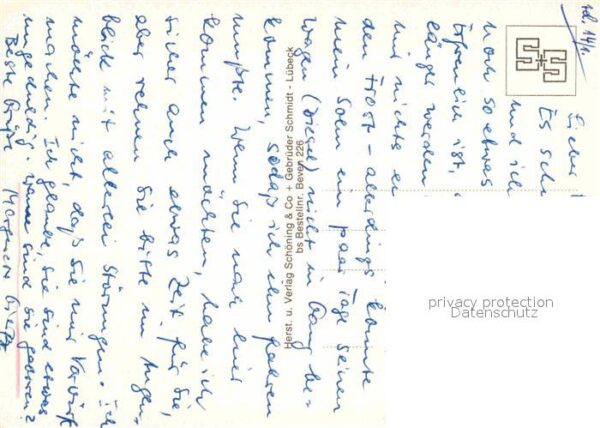 erl. 14/1.
S+S
Lieber
und ich
Es sch
noch so etwas
Erfreulich ist,
länger werden
mir nichts
den Frost - allerdings konnte
mein Sohn ein paar Tage seinen
Wagen (Diesel) nicht in Gang be-
kommen, sodaß ich ihn fahren
mußte. Wenn Sie mal hier
kommen möchten, habe ich
sicher auch etwas Zeit für Sie,
aber rechnen Sie bitte im Augen-
blick mit allerlei Störungen. Ich
möchte nicht, daß Sie mir Vorwürfe
machen. Ich glaube, Sie sind etwas
ungeduldig, wann sind Sie geboren?
Beste Grüße
Herst. u. Verlag Schöning & Co + Gebrüder Schmidt - Lübeck
bs Bestellnr. Beven 226
privacy protection
Datenschutz